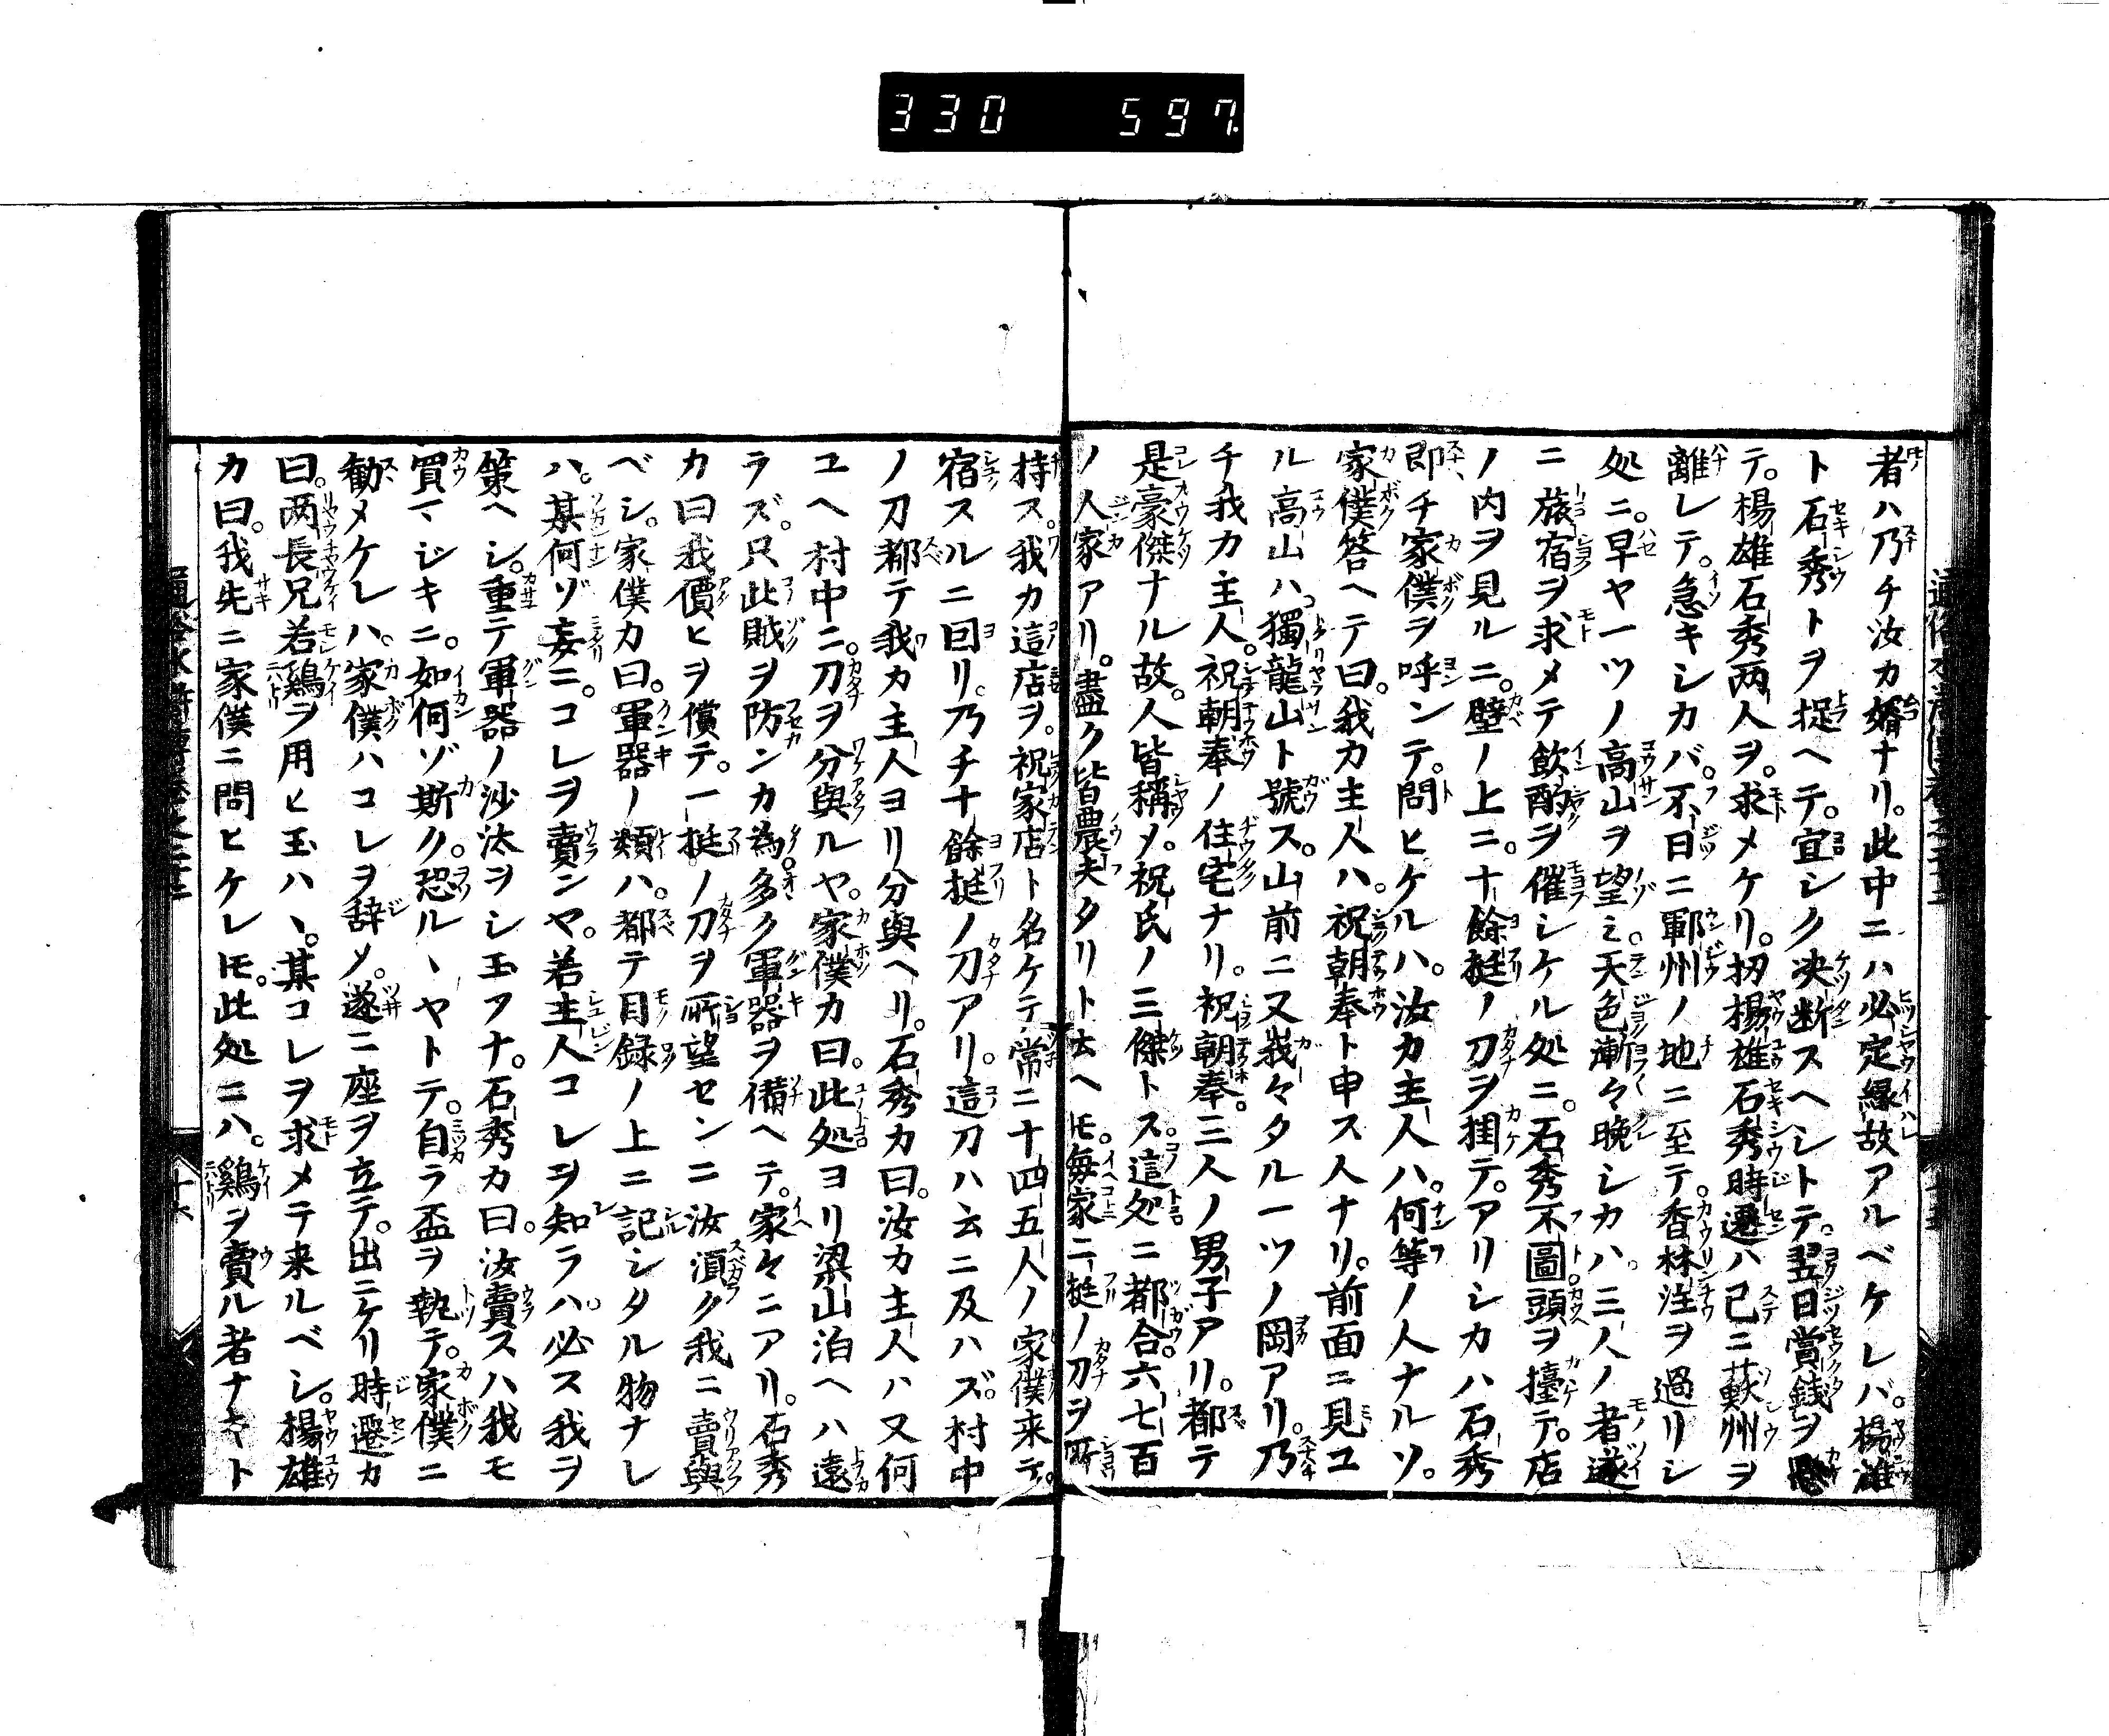 330 597.
者ハ乃チ汝カ婿ナリ。此中ニハ必定縁故アルベケレバ。楊雄
ト石秀トヲ捉ヘテ。宜シク决断スヘシトテ。翌日賞銭ヲ懸
テ。楊雄石秀两人ヲ。求メケリ。扨楊雄石秀時遷ハ已ニ蘓州ヲ
離レテ。急キシカバ。不日ニ鄆州ノ地ニ至テ。香林洼ヲ過リシ
処ニ。早ヤ一ツノ高山ヲ望ミ。天色漸々晩シカハ。三人ノ者遂
ニ旅宿ヲ求メテ飲酌ヲ催シケル処ニ。石秀不圖頭ヲ擡テ。店
ノ内ヲ見ルニ。壁ノ上ニ。十餘挺ノ刀ヲ掛テ。アリシカハ石秀
即チ家僕ヲ呼ンテ。問ヒケルハ。汝カ主人ハ。何等ノ人ナルソ。
家僕答ヘテ曰。我カ主人ハ。祝朝奉ト申ス人ナリ。前面ニ見ユ
ル高山ハ。獨龍山ト號ス。山前ニ又峩々タル一ツノ岡アリ。乃
チ我カ主人。祝朝奉ノ住宅ナリ。祝朝奉。三人ノ男子アリ。都テ
是豪傑ナル故。人皆稱メ。祝氏ノ三傑トス。這処ニ都合。六七百
ノ人家アリ。盡ク皆農夫タリト云ヘ𪜈。毎家ニ一挺ノ刀ヲ所
持ス。我カ這店ヲ。祝家店ト名ケテ。常ニ十四五人ノ家僕来テ。
宿スルニ回リ。乃チ十餘挺ノ刀アリ。這刀ハ云ニ及ハズ。村中
ノ刀都テ我カ主人ヨリ分與ヘリ。石秀カ曰。汝カ主人ハ又何
ユヘ村中ニ。刀ヲ分與ルヤ。家僕カ曰。此処ヨリ梁山泊ヘハ遠
ラズ。只此賊ヲ防ンカ為。多ク軍器ヲ備ヘテ。家々ニアリ。石秀
カ曰我價ヒヲ償テ。一挺ノ刀ヲ所望センニ汝須ク我ニ賣與
ベシ。家僕カ曰。軍器ノ類ハ。都テ目録ノ上ニ記シタル物ナレ
ハ。某何ゾ妄ニ。コレヲ賣ンヤ。若主人コレヲ知ラハ。必ス我ヲ
策ヘシ。重テ軍器ノ沙汰ヲシ玉フナ。石秀カ曰。汝賣スハ我モ
買マジキニ。如何ゾ斯ク。恐ルヽヤトテ。自ラ盃ヲ執テ。家僕ニ
勧メケレハ。家僕ハコレヲ辞メ。遂ニ座ヲ立テ。出ニケリ時遷カ
曰。两長兄若鶏ヲ用ヒ玉ハヽ。某コレヲ求メテ来ルベシ。楊雄
カ曰。我先ニ家僕ニ問ヒケレ𪜈。此処ニハ。鶏ヲ賣ル者ナキト